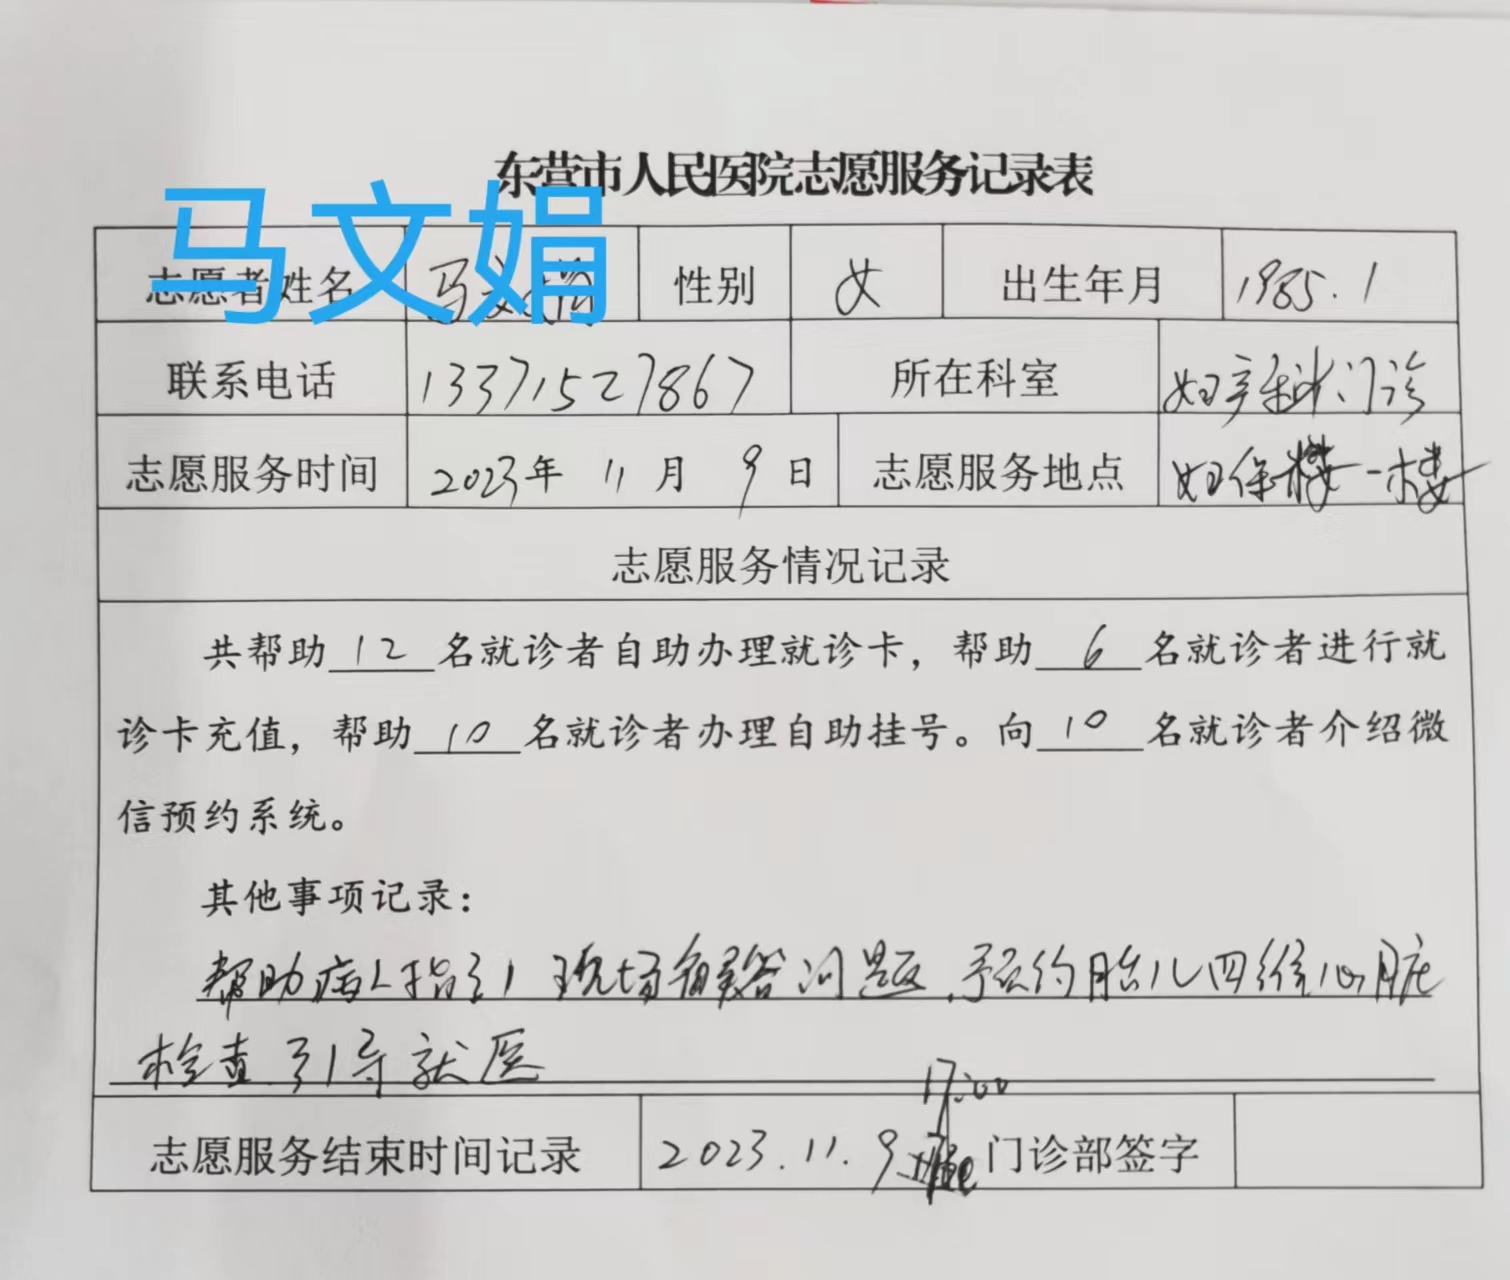 东营市人民医院志愿服务记录表
马文娟
志愿者姓名 马文娟 性别 女 出生年月 1985.1
联系电话 13371527867 所在科室 妇产科门诊
志愿服务时间 2023年 11月 9日 志愿服务地点 妇保楼一楼
志愿服务情况记录
共帮助12名就诊者自助办理就诊卡，帮助6名就诊者进行就
诊卡充值，帮助10名就诊者办理自助挂号。向10名就诊者介绍微
信预约系统。
其他事项记录：
帮助病人指引 现场解答问题.预约胎儿四维心脏
检查 引导就医
17:00
志愿服务结束时间记录 2023.11.9 门诊部签字